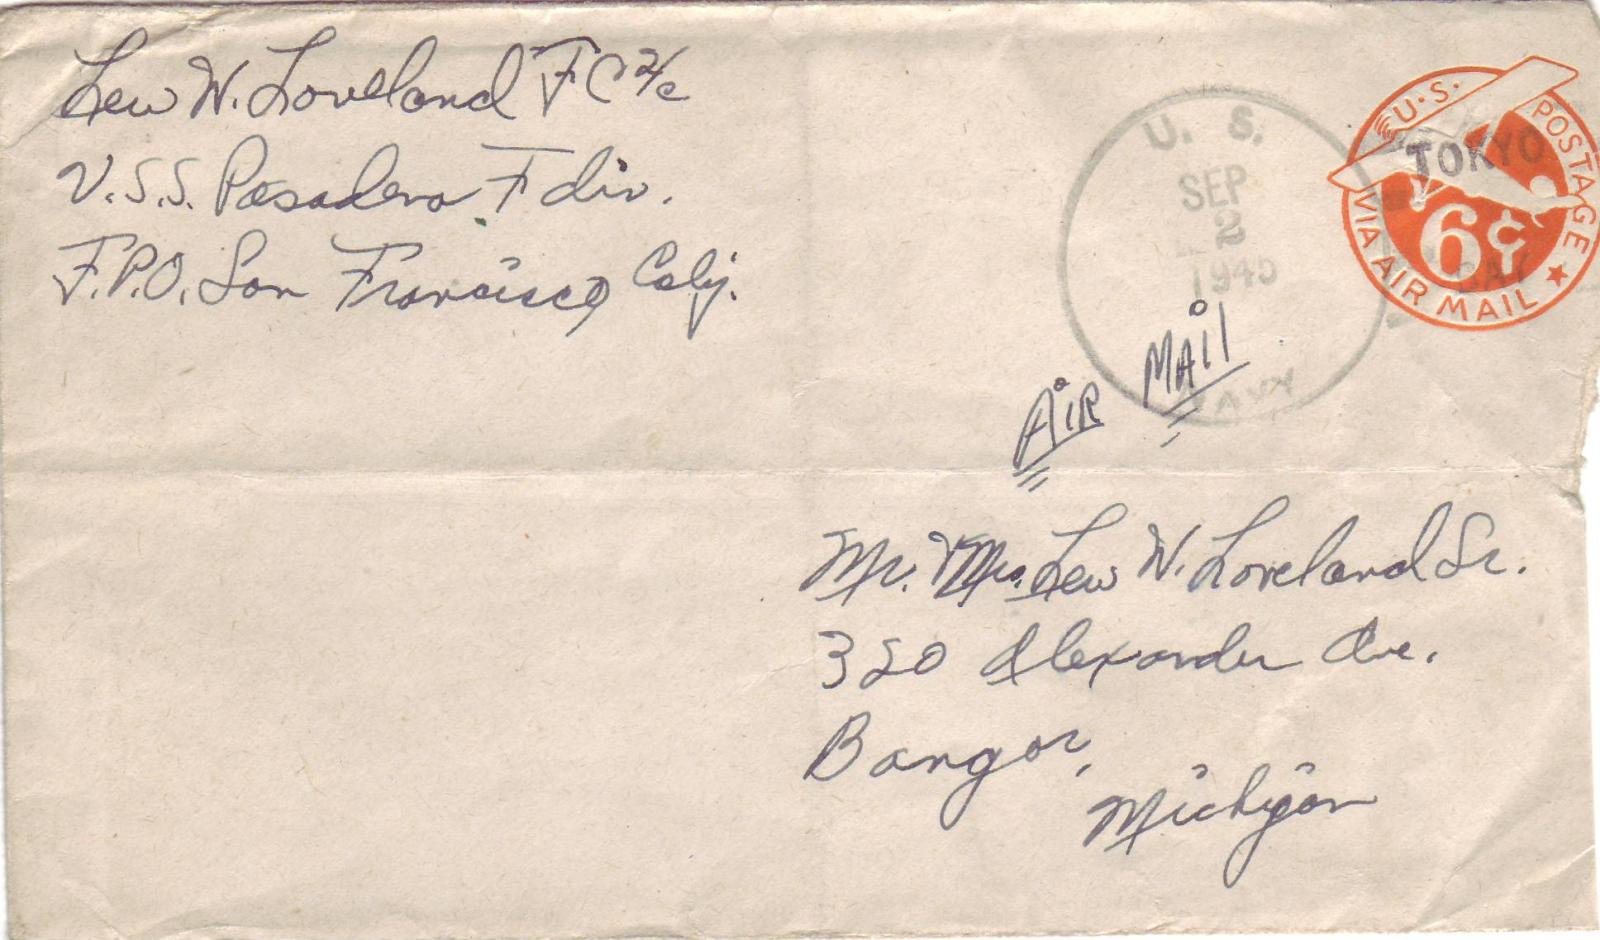 Lew W. Loveland F C 2/c
U.S.S. Pasadena F div.
F.P.O. San Francisco Calif.
U. S.
SEP
2
1945
NAVY
TOKYO
BAY
U.S. POSTAGE
6¢
VIA AIR MAIL
AIR MAIL
Mr. & Mrs. Lew W. Loveland Sr.
320 Alexander Ave.
Bangor,
Michigan